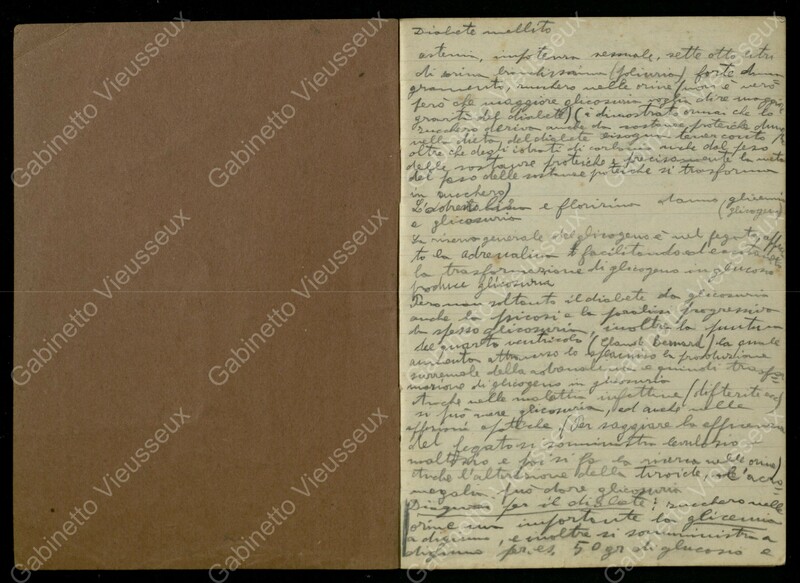 Diabete mellito
astenia, impotenza sessuale, sette otto litri
di orina (poliuria) forte dima-
gramento, zucchero nelle orine (non è vero
però che maggiore glicosuria voglia dire maggiore
gravità del diabete) (è dimostrato ormai che lo
zucchero deriva anche da sostanze proteiche
nella dieta del diabete bisogna tener conto
oltre che degli idrati di carbonio anche del peso
delle sostanze proteiche e precisamente la metà
del peso delle sostanze proteiche si trasforma
in zucchero)
L'adrenalina e florizina danno glicemia
e glicosuria (glicogeno)
La riserva generale di glicogeno è nel fegato,
la adrenalina facilitando
la trasformazione di glicogeno in glucosio
produce glicosuria
Però non soltanto il diabete da glicosuria
anche la psicosi e la paralisi progressiva
da spesso glicosuria, inoltre la puntura
del quarto ventricolo (Claude Bernard) la quale
aumenta attraverso lo splancnico la produzione
surrenale della e quindi trasfor-
mazione di glicogeno in glicosuria
Anche nelle malattie infettive (difterite ecc)
si può avere glicosuria, ed anche nelle
affezioni epatiche. (Per saggiare la efficienza
del fegato si somministra levulosio
maltosio e poi si fa la ricerca nelle orine)
Anche l'alterazione della tiroide, e l'acro-
megalia può dare glicosuria
Diagnosi per il diabete: zucchero nelle
orine importante la glicemia
a digiuno, e inoltre si somministra a
digiuno per es. 50 gr di glucosio e
Gabinetto Vieusseux